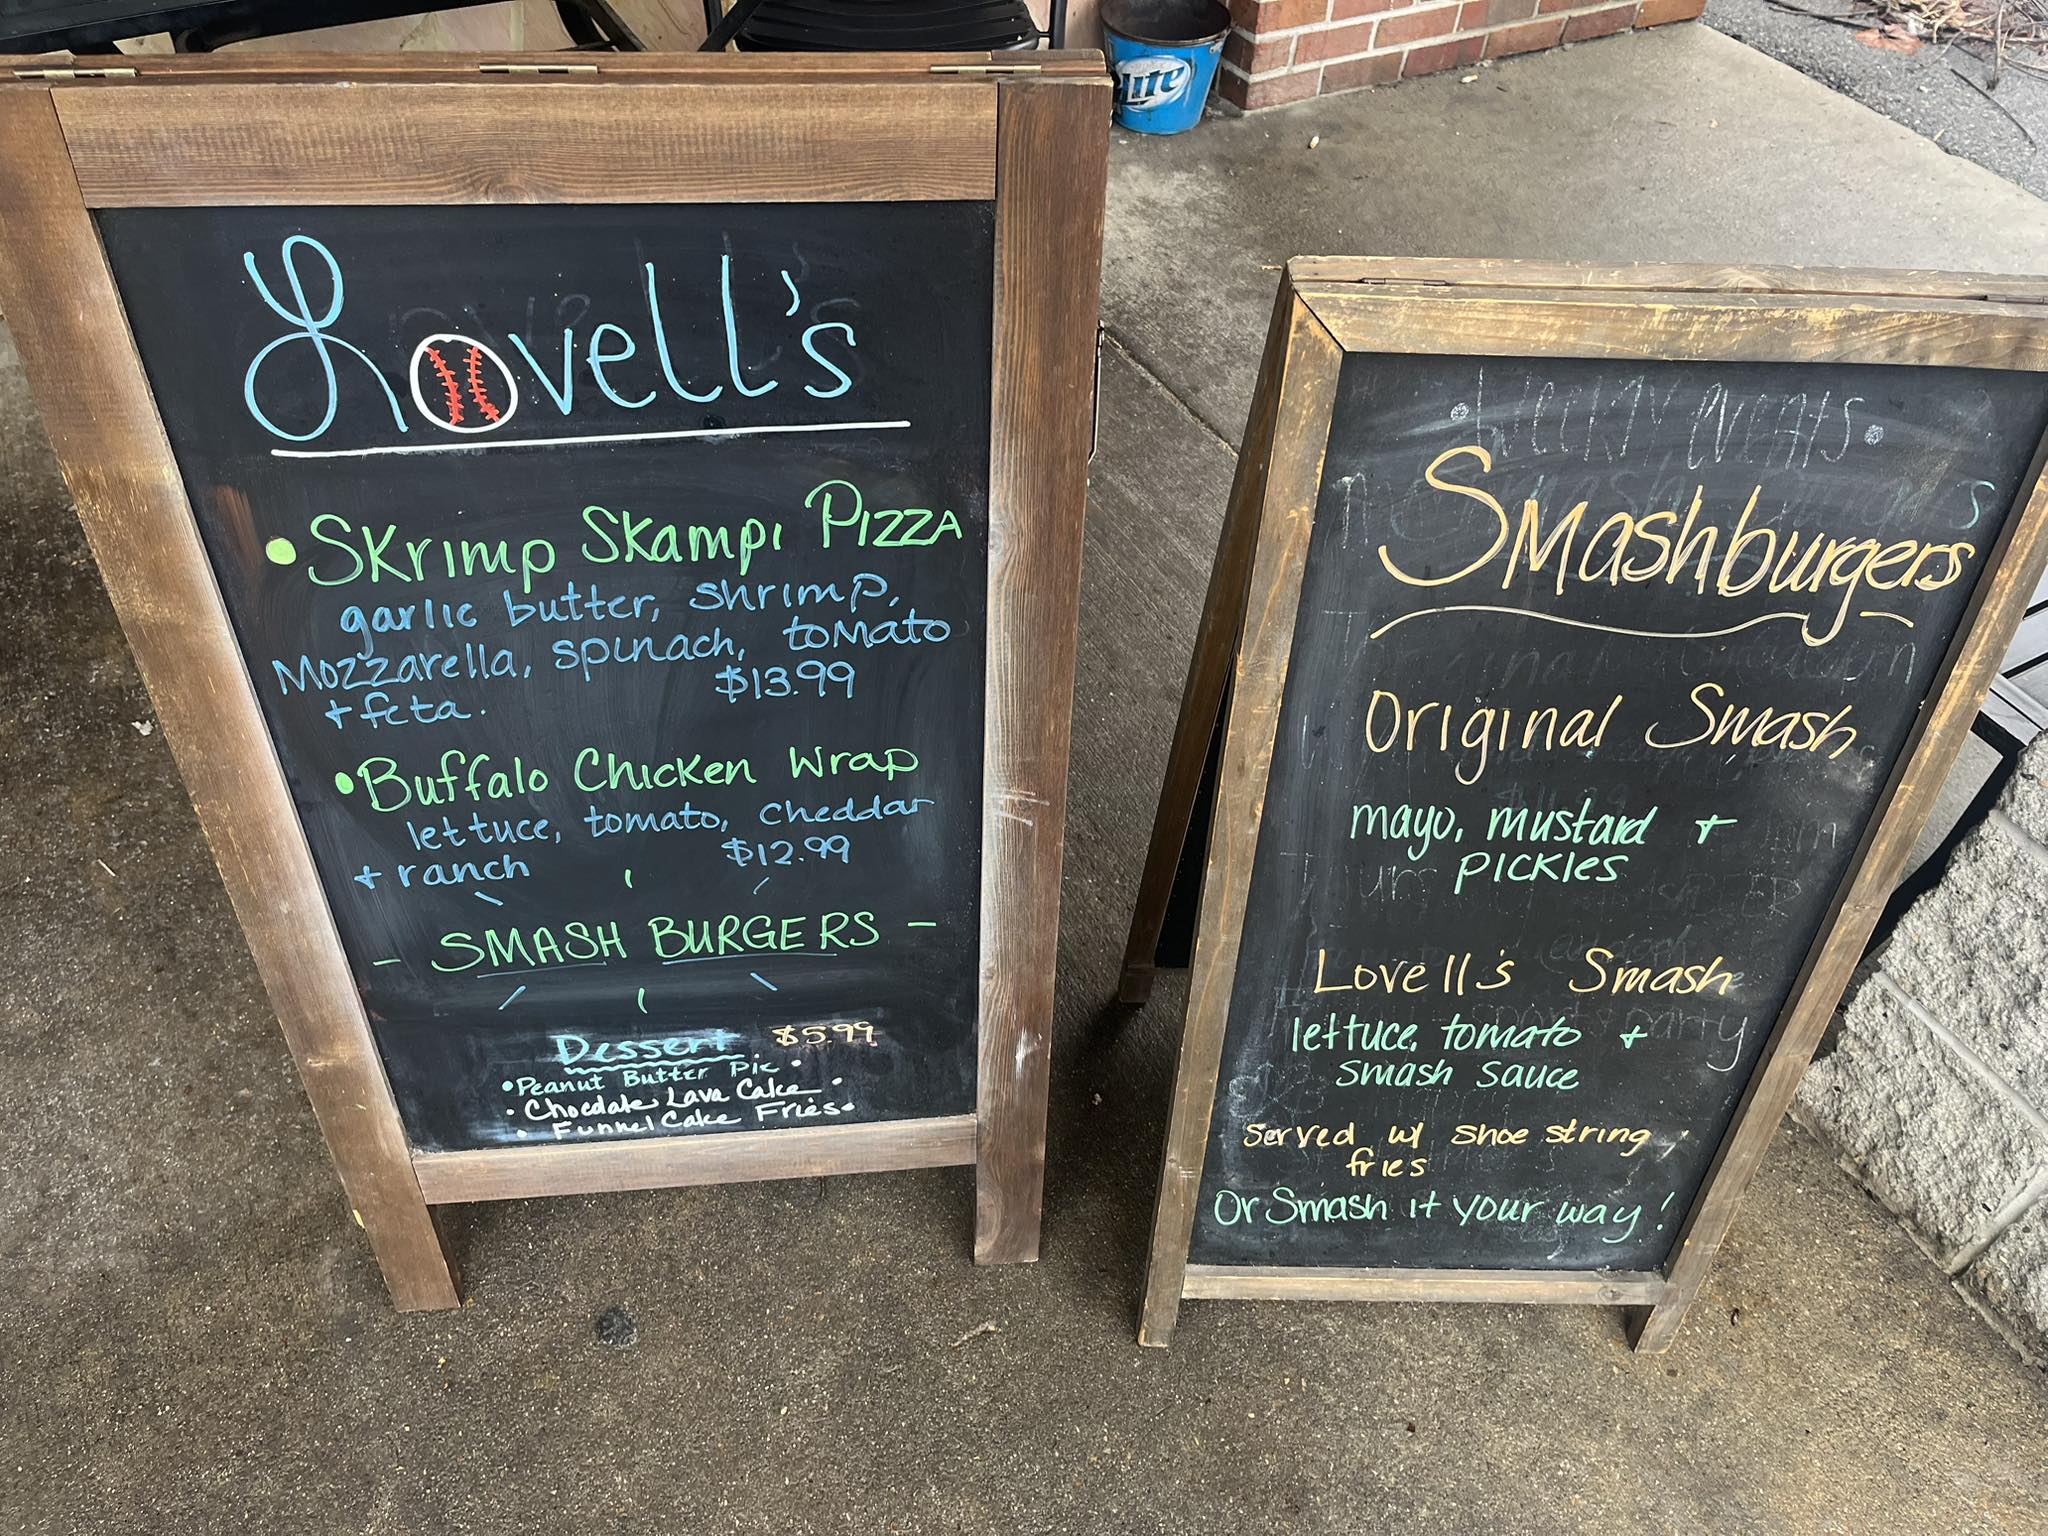 Lite
Lovell's
• Skrimp Skampi Pizza
garlic butter, shrimp,
Mozzarella, spinach, tomato
+ feta. $13.99
• Buffalo Chicken Wrap
lettuce, tomato, cheddar
+ ranch $12.99
- SMASH BURGERS -
Dessert $5.99
• Peanut Butter Pie •
• Chocolate Lava Cake •
• Funnel Cake Fries •
• Weekly events •
Smashburgers
Original Smash
mayo, mustard +
pickles
Lovell's Smash
lettuce, tomato +
smash sauce
served w/ shoe string
fries
Or Smash it your way!